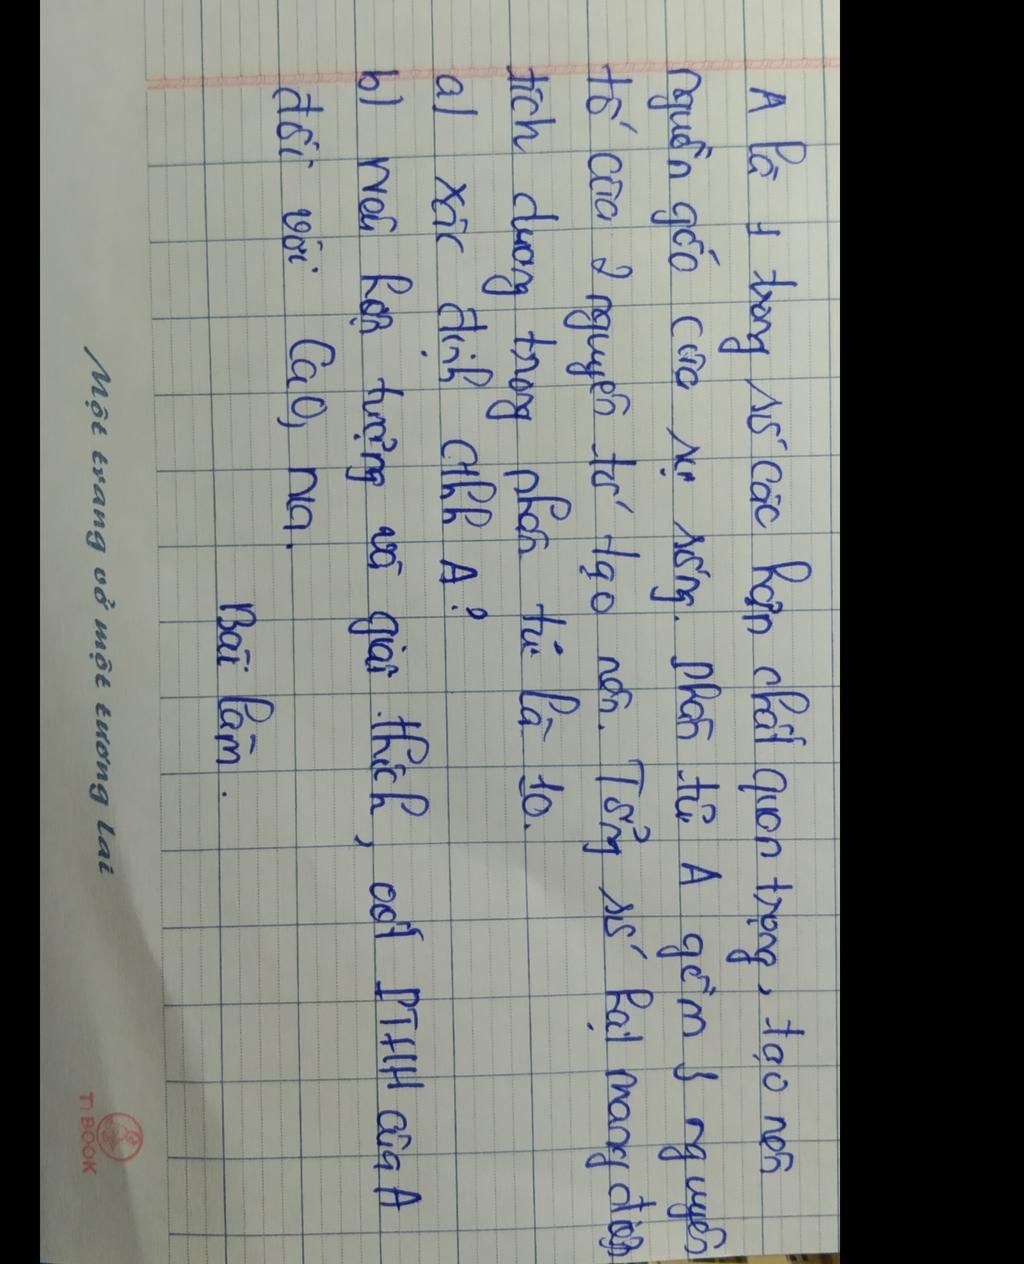 A là 1 trong số các hợp chất quan trọng, tạo nên
nguồn gốc của sự sống. phân tử A gồm 3 nguyên
tố của 2 nguyên tố tạo nên. Tổng số hạt mang điện
tích dương trong phân tử là 10.
a) xác định CTHH A?
b) Nêu hiện tượng và giải thích, viết PTHH của A
đối với CaO, Na.
Bài làm.
Một trang vở một tương lai
Ti BOOK